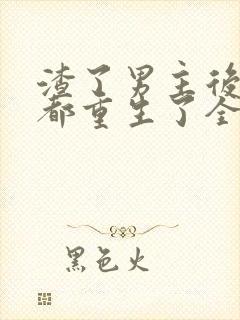 渣了男主後
都重生了全
黑色火